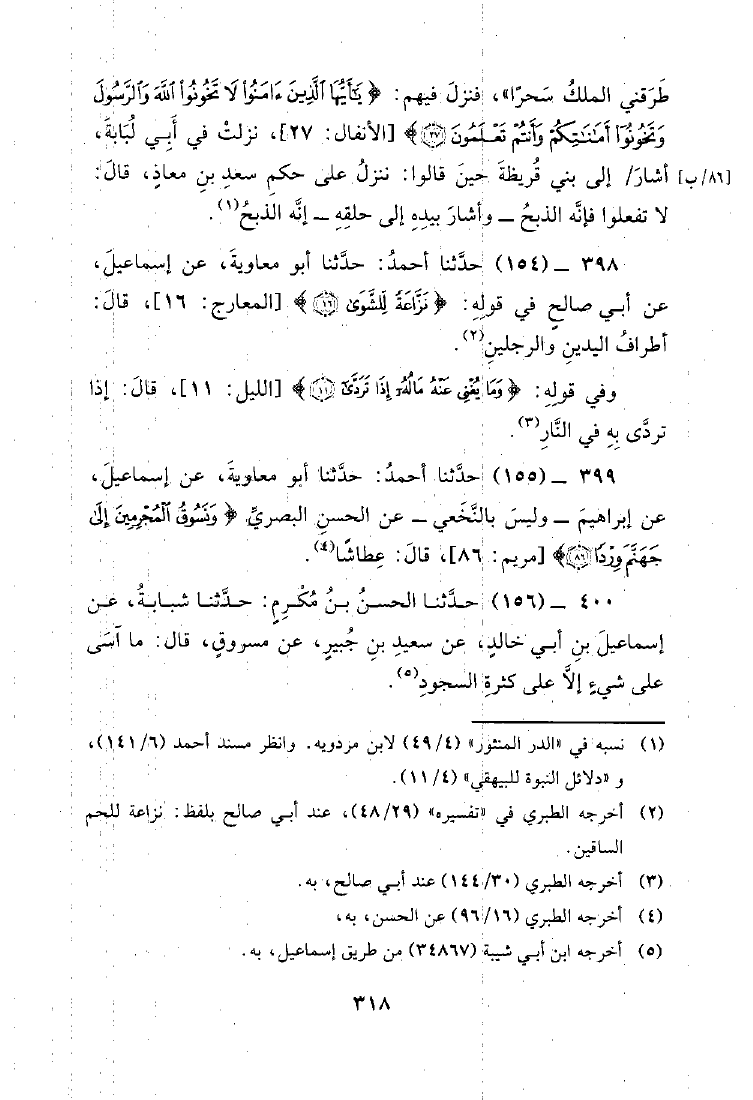 طَرَقني الملكُ سَحرًا»، فنزلَ فيهم: ﴿ يَٰٓأَيُّهَا ٱلَّذِينَ ءَامَنُوا۟ لَا تَخُونُوا۟ ٱللَّهَ وَٱلرَّسُولَ
وَتَخُونُوٓا۟ أَمَٰنَٰتِكُمْ وَأَنتُمْ تَعْلَمُونَ ۝٢٧ ﴾ [الأنفال: ٢٧]، نزلتْ في أَبـي لُبَابةَ،
[٨٦/ب] أشارَ/ إلى بني قُريظةَ حينَ قالوا: ننزلُ على حكمِ سعدِ بنِ معاذٍ، قالَ:
لا تفعلوا فإنَّه الذبحُ ــ وأشارَ بيدِهِ إلى حلقِهِ ــ إنَّه الذبحُ(١).
٣٩٨ ــ (١٥٤) حدَّثنا أحمدُ: حدَّثنا أبو معاويةَ، عن إسماعيلَ،
عن أبـي صالحٍ في قولِهِ: ﴿ نَزَّاعَةً لِّلشَّوَىٰ ۝١٦ ﴾ [المعارج: ١٦]، قالَ:
أطرافُ اليدينِ والرجلينِ(٢).
وفي قولِهِ: ﴿ وَمَا يُغْنِى عَنْهُ مَالُهُۥٓ إِذَا تَرَدَّىٰٓ ۝١١ ﴾ [الليل: ١١]، قالَ: إذا
تردَّى بِهِ في النَّارِ(٣).
٣٩٩ ــ (١٥٥) حدَّثنا أحمدُ: حدَّثنا أبو معاويةَ، عن إسماعيلَ،
عن إبراهيمَ ــ وليسَ بالنَّخَعي ــ عن الحسنِ البصريِّ ﴿ وَنَسُوقُ ٱلْمُجْرِمِينَ إِلَىٰ
جَهَنَّمَ وِرْدًا ۝٨٦ ﴾ [مريم: ٨٦]، قالَ: عِطاشًا(٤).
٤٠٠ ــ (١٥٦) حدَّثنا الحسنُ بنُ مُكْرِمٍ: حدَّثنا شبابةُ، عن
إسماعيلَ بنِ أبـي خالدٍ، عن سعيدِ بنِ جُبيرٍ، عن مسروقٍ، قال: ما آسَى
على شيءٍ إلاَّ على كثرةِ السجودِ(٥).
(١) نسبه في «الدر المنثور» (٤٩/٤) لابن مردويه. وانظر مسند أحمد (١٤١/٦)،
و «دلائل النبوة للبيهقي» (١١/٤).
(٢) أخرجه الطبري في «تفسيره» (٤٨/٢٩)، عند أبـي صالح بلفظ: نزاعة للحم
الساقين.
(٣) أخرجه الطبري (١٤٤/٣٠) عند أبـي صالح، به.
(٤) أخرجه الطبري (٩٦/١٦) عن الحسن، به،
(٥) أخرجه ابن أبـي شيبة (٣٤٨٦٧) من طريق إسماعيل، به.
٣١٨